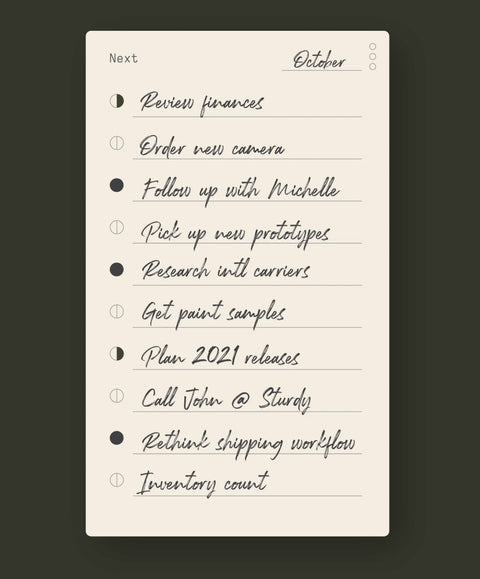 Next
October
Review finances
Order new camera
Follow up with Michelle
Pick up new prototypes
Research intl carriers
Get paint samples
Plan 2021 releases
Call John @ Sturdy
Rethink shipping workflow
Inventory count